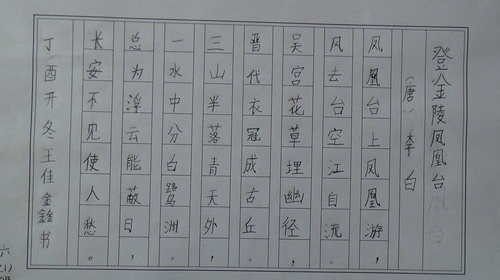 登金陵凤凰台
（唐）李白
凤凰台上凤凰游，
凤去台空江自流。
吴宫花草埋幽径，
晋代衣冠成古丘。
三山半落青天外，
一水中分白鹭洲。
总为浮云能蔽日，
长安不见使人愁。
丁酉开冬王佳鑫书